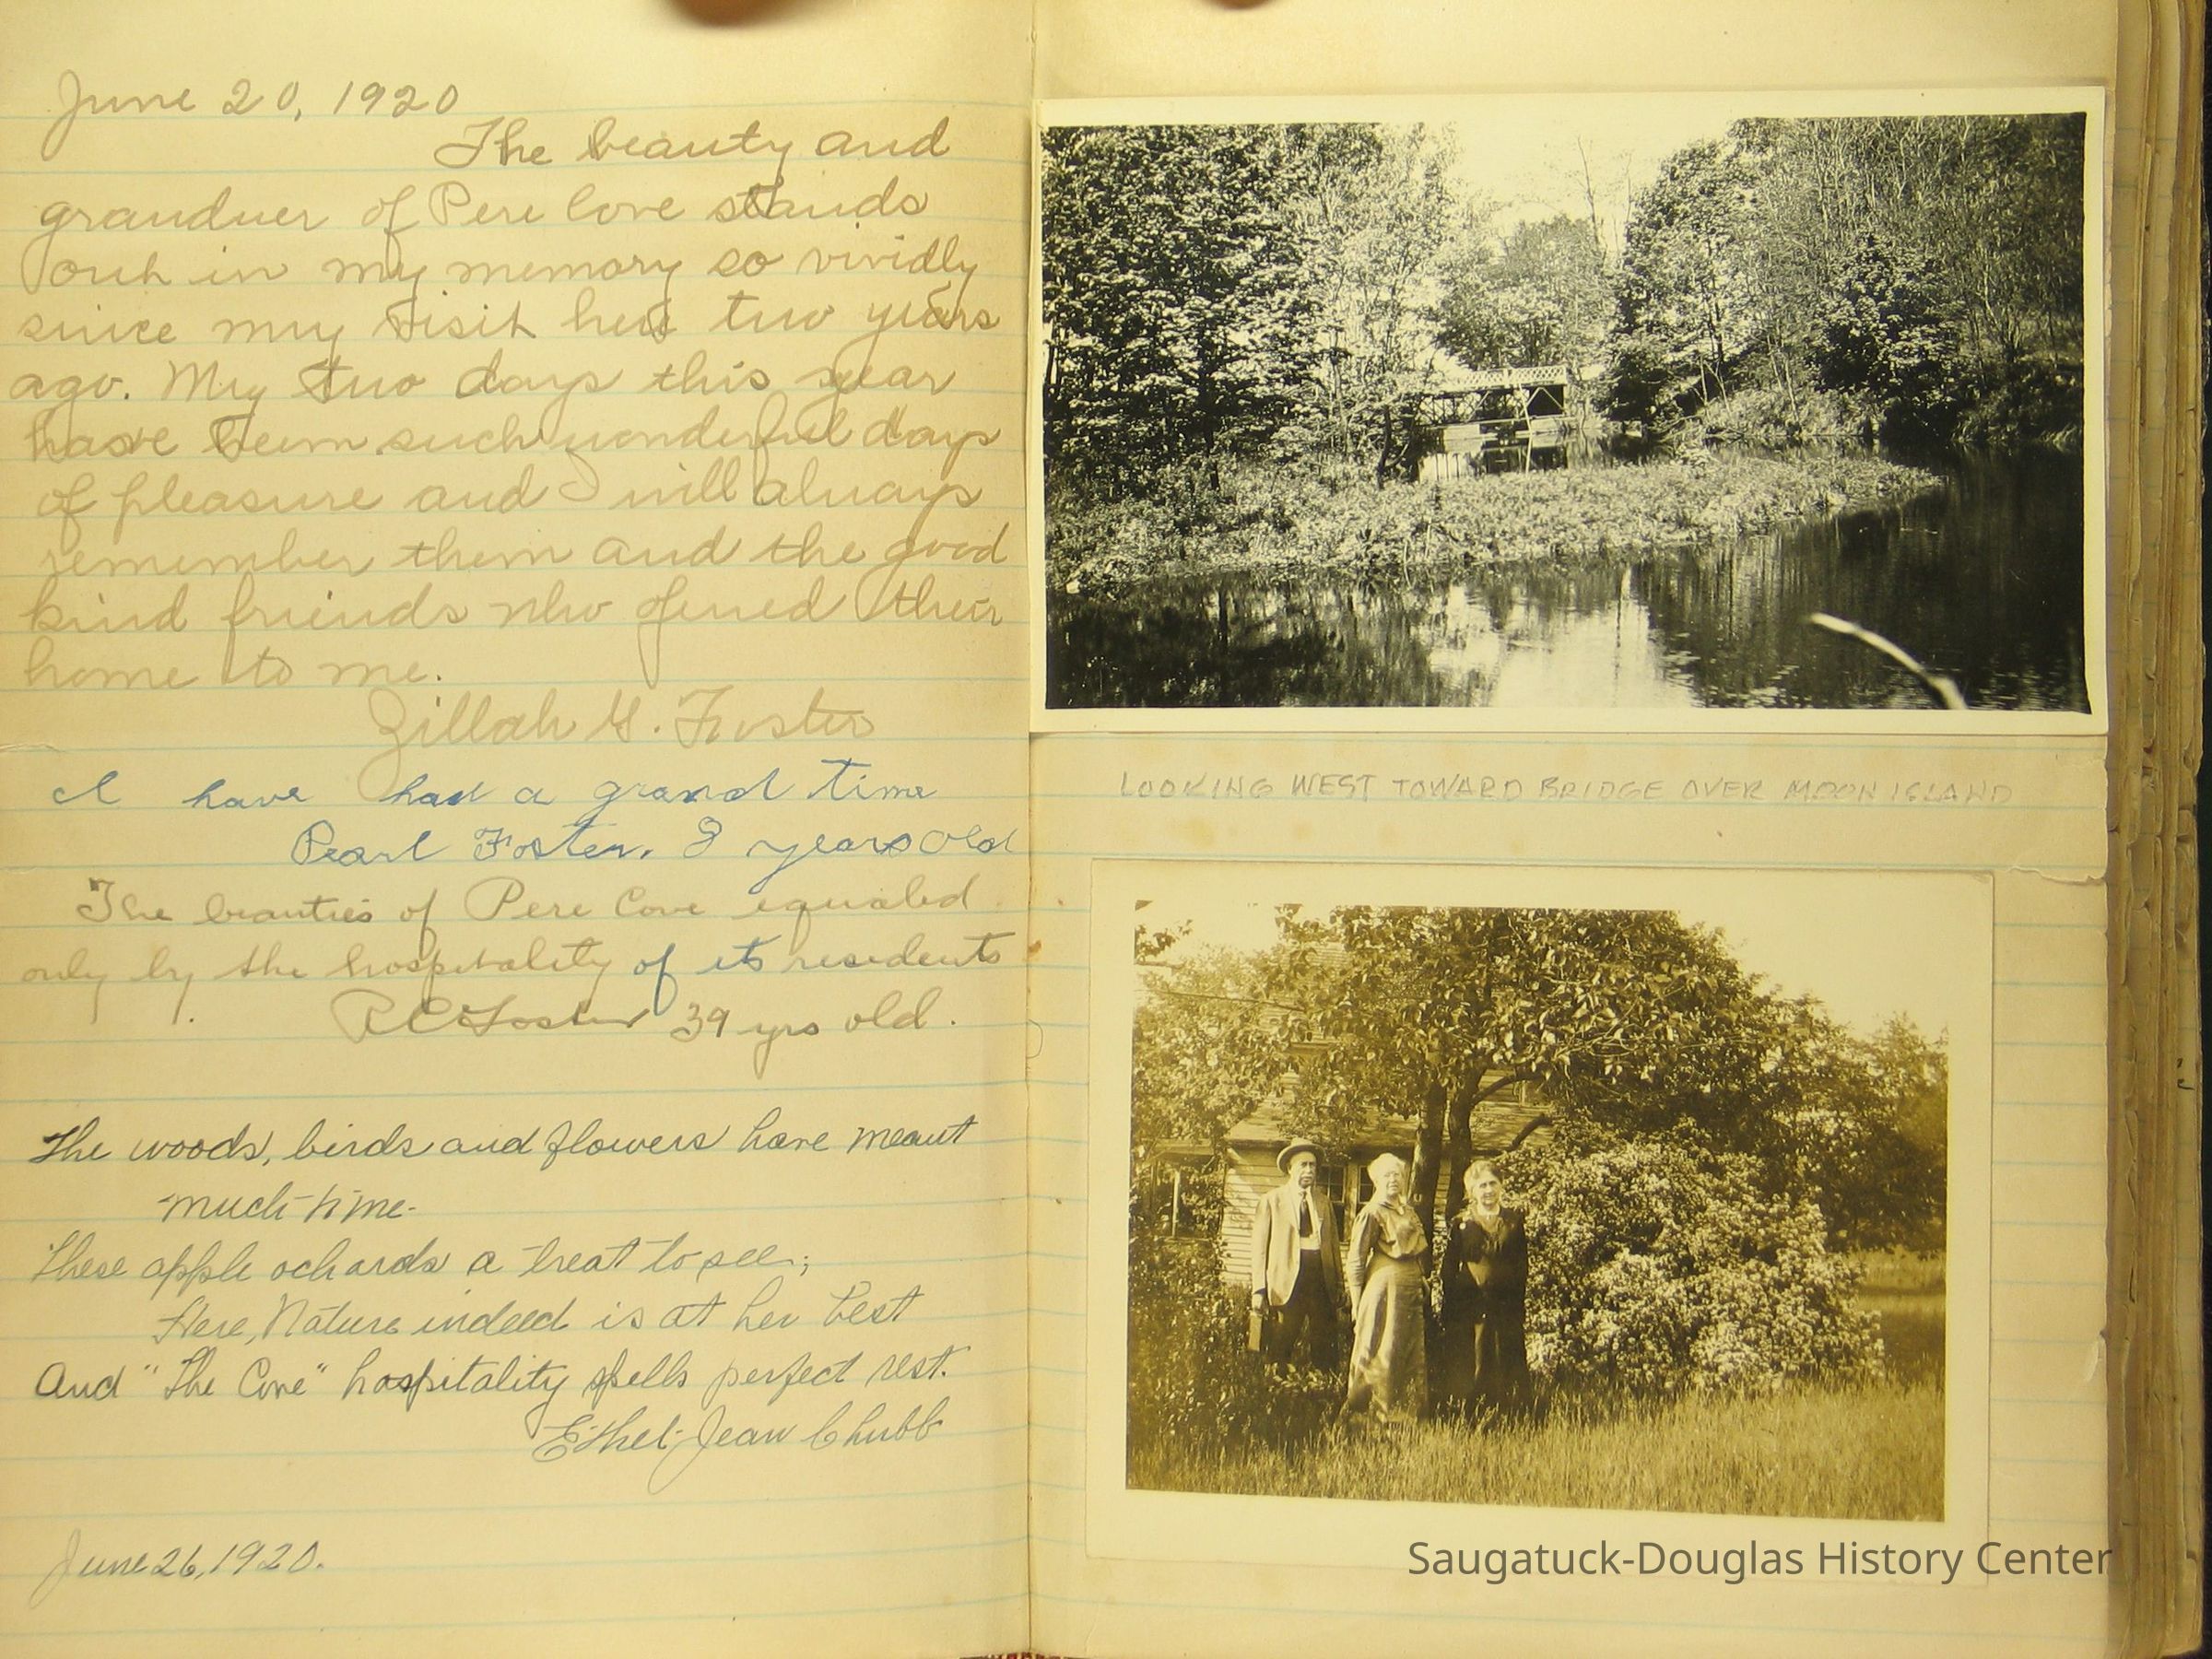 June 20, 1920
The beauty and
granduer of Pere Cove stands
out in my memory so vividly
since my visit here two years
ago. My two days this year
have been such wonderful days
of pleasure and I will always
remember them and the good
kind friends who offered their
home to me.
Zillah G. Foster
I have had a grand time
Pearl Foster. 8 years old
The beauties of Pere Cove equaled
only by the hospitality of its residents
R C Foster 39 yrs old.
The woods, birds and flowers have meant
much to me-
These apple ochards a treat to see;
Here, Nature indeed is at her best
And "The Cove" hospitality spells perfect rest.
Ethel-Jean Chubb
June 26, 1920.
LOOKING WEST TOWARD BRIDGE OVER MOON ISLAND
Saugatuck-Douglas History Center